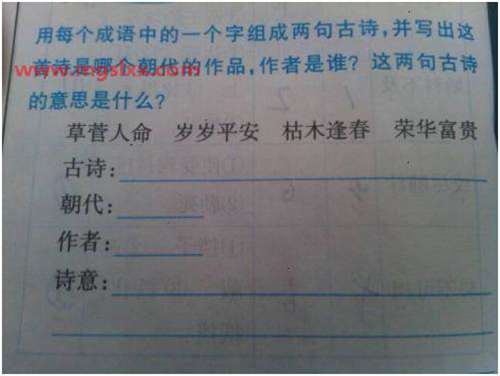 用每个成语中的一个字组成两句古诗,并写出这
首诗是哪个朝代的作品,作者是谁？这两句古诗
www.mgslxx.com
的意思是什么？
草菅人命 岁岁平安 枯木逢春 荣华富贵
古诗:
朝代:
作者:
诗意: